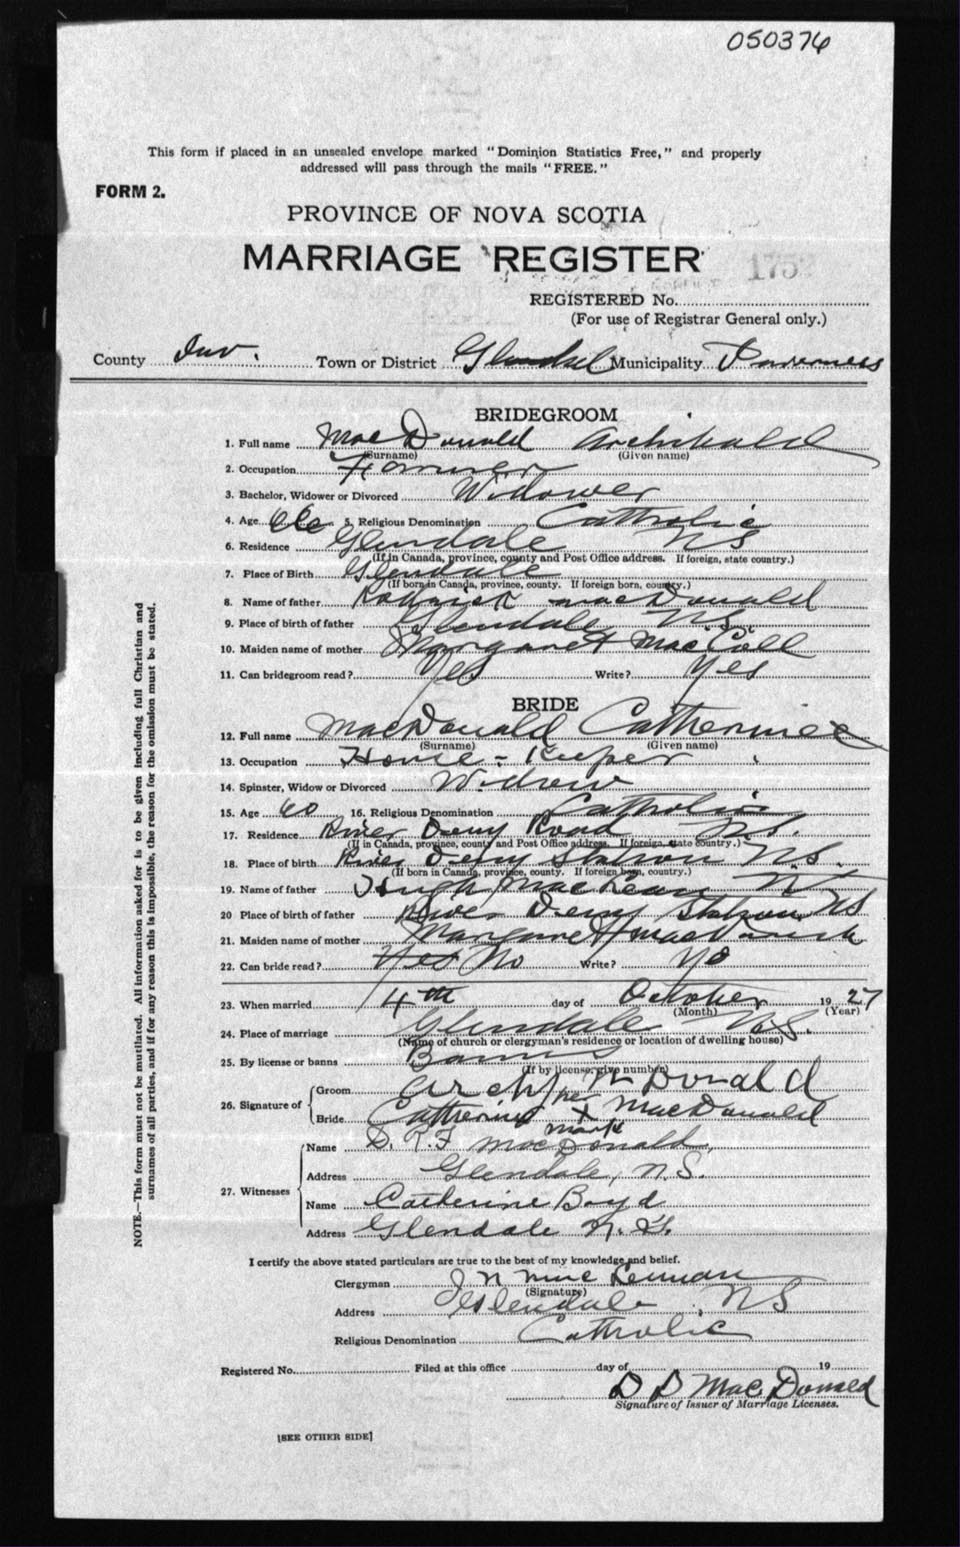 050376
This form if placed in an unsealed envelope marked "Dominion Statistics Free," and properly
addressed will pass through the mails "FREE."
FORM 2.
PROVINCE OF NOVA SCOTIA
MARRIAGE REGISTER
1752
REGISTERED No.
(For use of Registrar General only.)
County Inv. Town or District Glendale Municipality Inverness
BRIDEGROOM
1. Full name MacDonald Archibald
(Surname) (Given name)
2. Occupation Farmer
3. Bachelor, Widower or Divorced Widower
4. Age 66 5. Religious Denomination Catholic
6. Residence Glendale NS
(If in Canada, province, county and Post Office address. If foreign, state country.)
7. Place of Birth Glendale
(If born in Canada, province, county. If foreign born, country.)
8. Name of father Rodrick MacDonald
9. Place of birth of father Glendale N.S.
10. Maiden name of mother Margaret MacColl
11. Can bridegroom read? Yes Write? Yes
BRIDE
12. Full name MacDonald Catherine
(Surname) (Given name)
13. Occupation House-Keeper
14. Spinster, Widow or Divorced Widow
15. Age 60 16. Religious Denomination Catholic
17. Residence River Deny Road N.S.
(If in Canada, province, county and Post Office address. If foreign, state country.)
18. Place of birth River Deny Station N.S.
(If born in Canada, province, county. If foreign born, country.)
19. Name of father Hugh MacLean
20 Place of birth of father River Deny Station NS
21. Maiden name of mother Margaret
22. Can bride read? Yes No Write? No
23. When married 14th day of October 1927
(Month) (Year)
24. Place of marriage Glendale N.S.
(Name of church or clergyman's residence or location of dwelling house)
25. By license or banns Banns
(If by license, give number)
26. Signature of Groom Arch McDonald
her
Bride Catherine X MacDonald
mark
27. Witnesses Name D. R. F MacDonald
Address Glendale, N.S.
Name Catherine Boyd
Address Glendale N.S.
I certify the above stated particulars are true to the best of my knowledge and belief.
Clergyman J N MacLennan
(Signature)
Address Glendale, NS
Religious Denomination Catholic
Registered No. Filed at this office day of 19
D D MacDonald
Signature of Issuer of Marriage Licenses.
[SEE OTHER SIDE]
NOTE.—This form must not be mutilated. All information asked for is to be given including full Christian and
surnames of all parties, and if for any reason this is impossible, the reason for the omission must be stated.